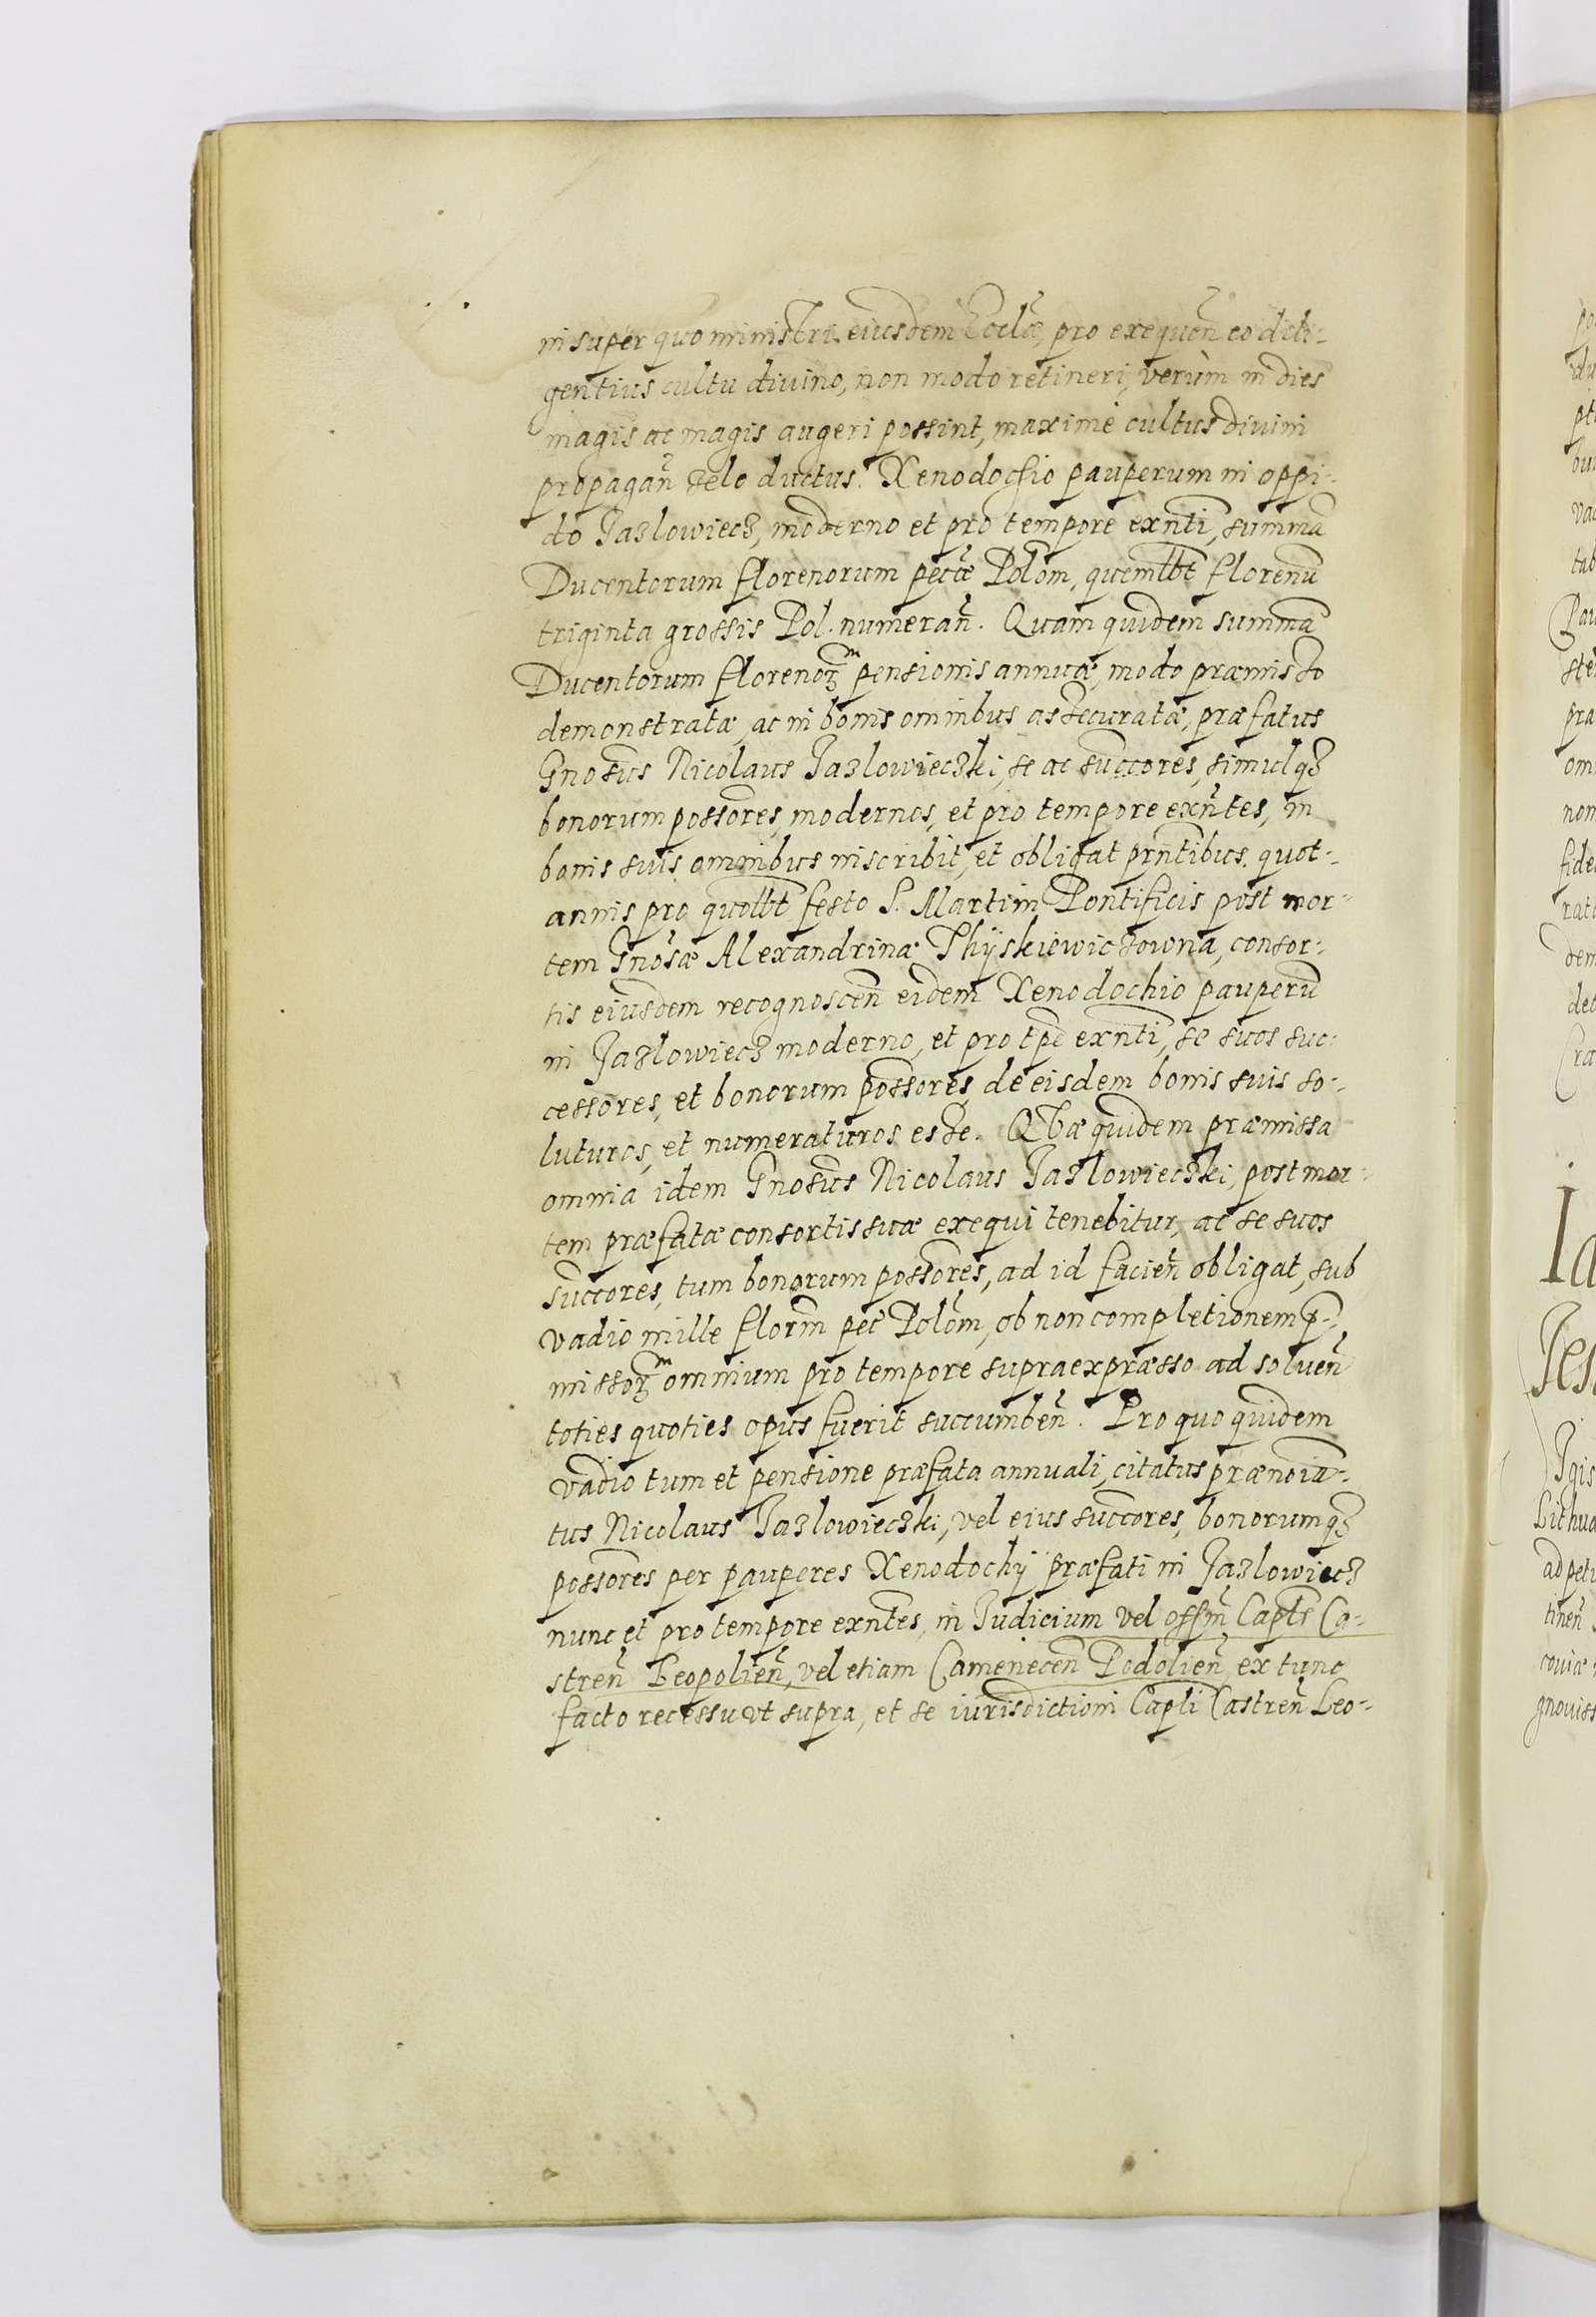 insuper quo ministri eiusdem Ecclæ, pro exequen̄ eo dili-
gentius cultu divino, non modo retineri, verùm in dies
magis ac magis augeri possint, maximè cultus divini
propagan̄ zelo ductus. Xenodochio pauperum in oppi-
do Jazlowiecz, moderno et pro tempore exn̄ti, summā
Ducentorum florenorum pecc̄æ Polom̄, quemlb̄t florenū
triginta grossis Pol. numeran̄. Quam quidem summā
Ducentorum florenoꝝᵐ pensionis annuæ, modo præmisso
demonstratæ, ac in bonis omnibus assecuratæ, præfatus
Gnosūs Nicolaus Jazlowieczki, se ac succ̄ores, simulqꝫ
bonorum possōres, modernos, et pro tempore exn̄tes, in
bonis suis omnibus inscribit, et obligat prn̄tibus. quot-
annis pro quolb̄t festo S. Martini Pontificis post mor-
tem Gnosǣ Alexandrinæ Thÿskiewiczowna, consor-
tis eiusdem recognoscen̄ eidem Xenodochio pauperū
in Jazlowiecz moderno, et pro tp̄e exn̄ti, se suos suc-
cessores, et bonorum possōres, de eisdem bonis suis so-
luturos, et numeraturos esse. Qūæ quidem præmissa
omnia idem Gnosūs Nicolaus Jazlowieczki, post mor-
tem præfatæ consortis suæ exequi tenebitur, ac se suos
succ̄ores, tum bonorum possōres, ad id facien̄ obligat, sub
vadio mille florm̄ pec̄ Polom̄, ob non completionem p̄-
missoꝝᵐ omnium pro tempore supra expræsso ad solven̄
toties quoties opus fuerit succumben̄. Pro quo quidem
vadio tum et pensione præfata annuali, citatus prænoīa-
tus Nicolaus Jazlowieczki, vel eius succ̄ores, bonorumqꝫ
possōres per pauperes Xenodochÿ præfati in Jazlowiecz
nunc et pro tempore exn̄tes, in Judicium vel offm̄ Capt̄e Ca-
stren̄ Leopolien̄, vel etiam Camenecen̄ Podolien̄, ex tunc
facto recessu vt supra, et se iurisdictioni Capl̄i Castren̄ Leo-